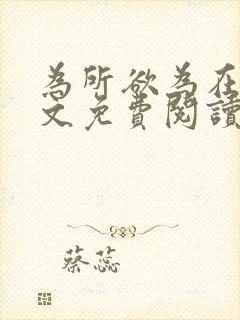 為所欲為在
文免費閱讀
蔡蕊